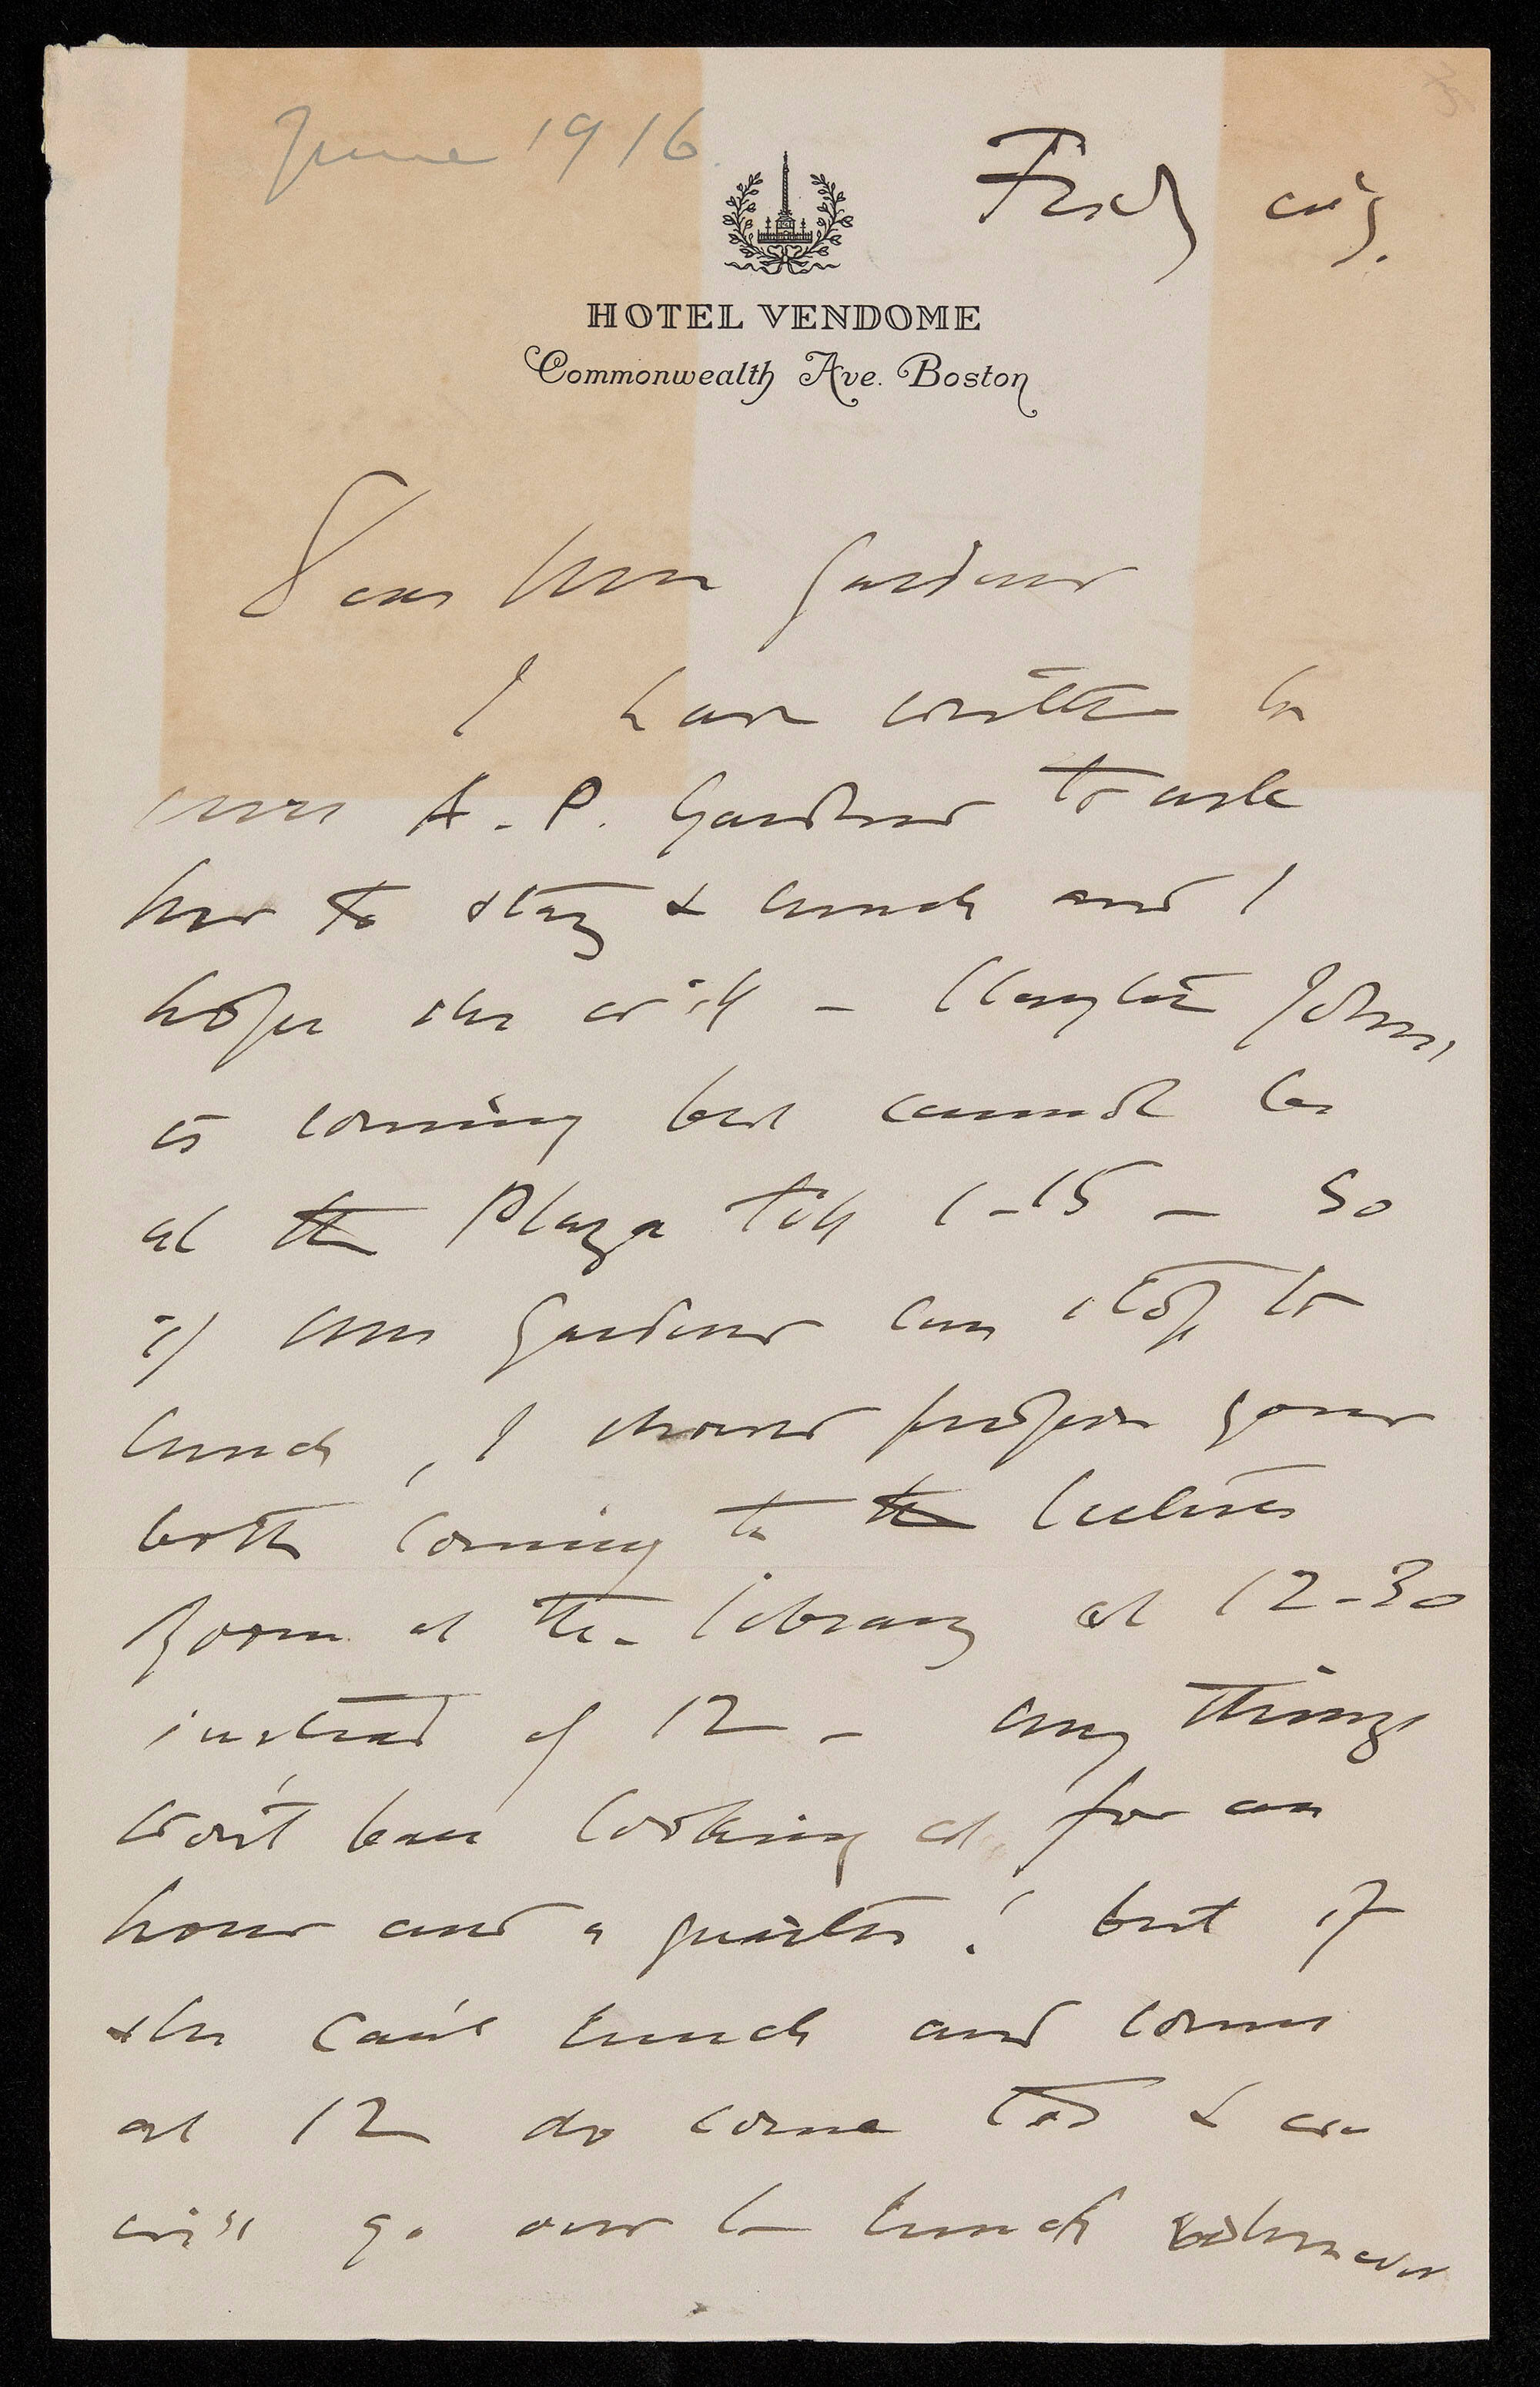 June 1916
Friday evg.
HOTEL VENDOME
Commonwealth Ave. Boston
Dear Mrs Gardner
I have written to
Mrs A. P. Gardner to ask
her to stay & lunch and I
hope she will – Clayton Johns,
is coming but cannot be
at the Plaza till 1-15 – So
if Mrs Gardner can stop to
lunch, I should propose your
both coming to the lecture
Room at the library at 12-30
instead of 12 – any things
won't bear looking at for an
hour and a quarter! but if
she can't lunch and comes
at 12 do come too & we
will go over to lunch whenever